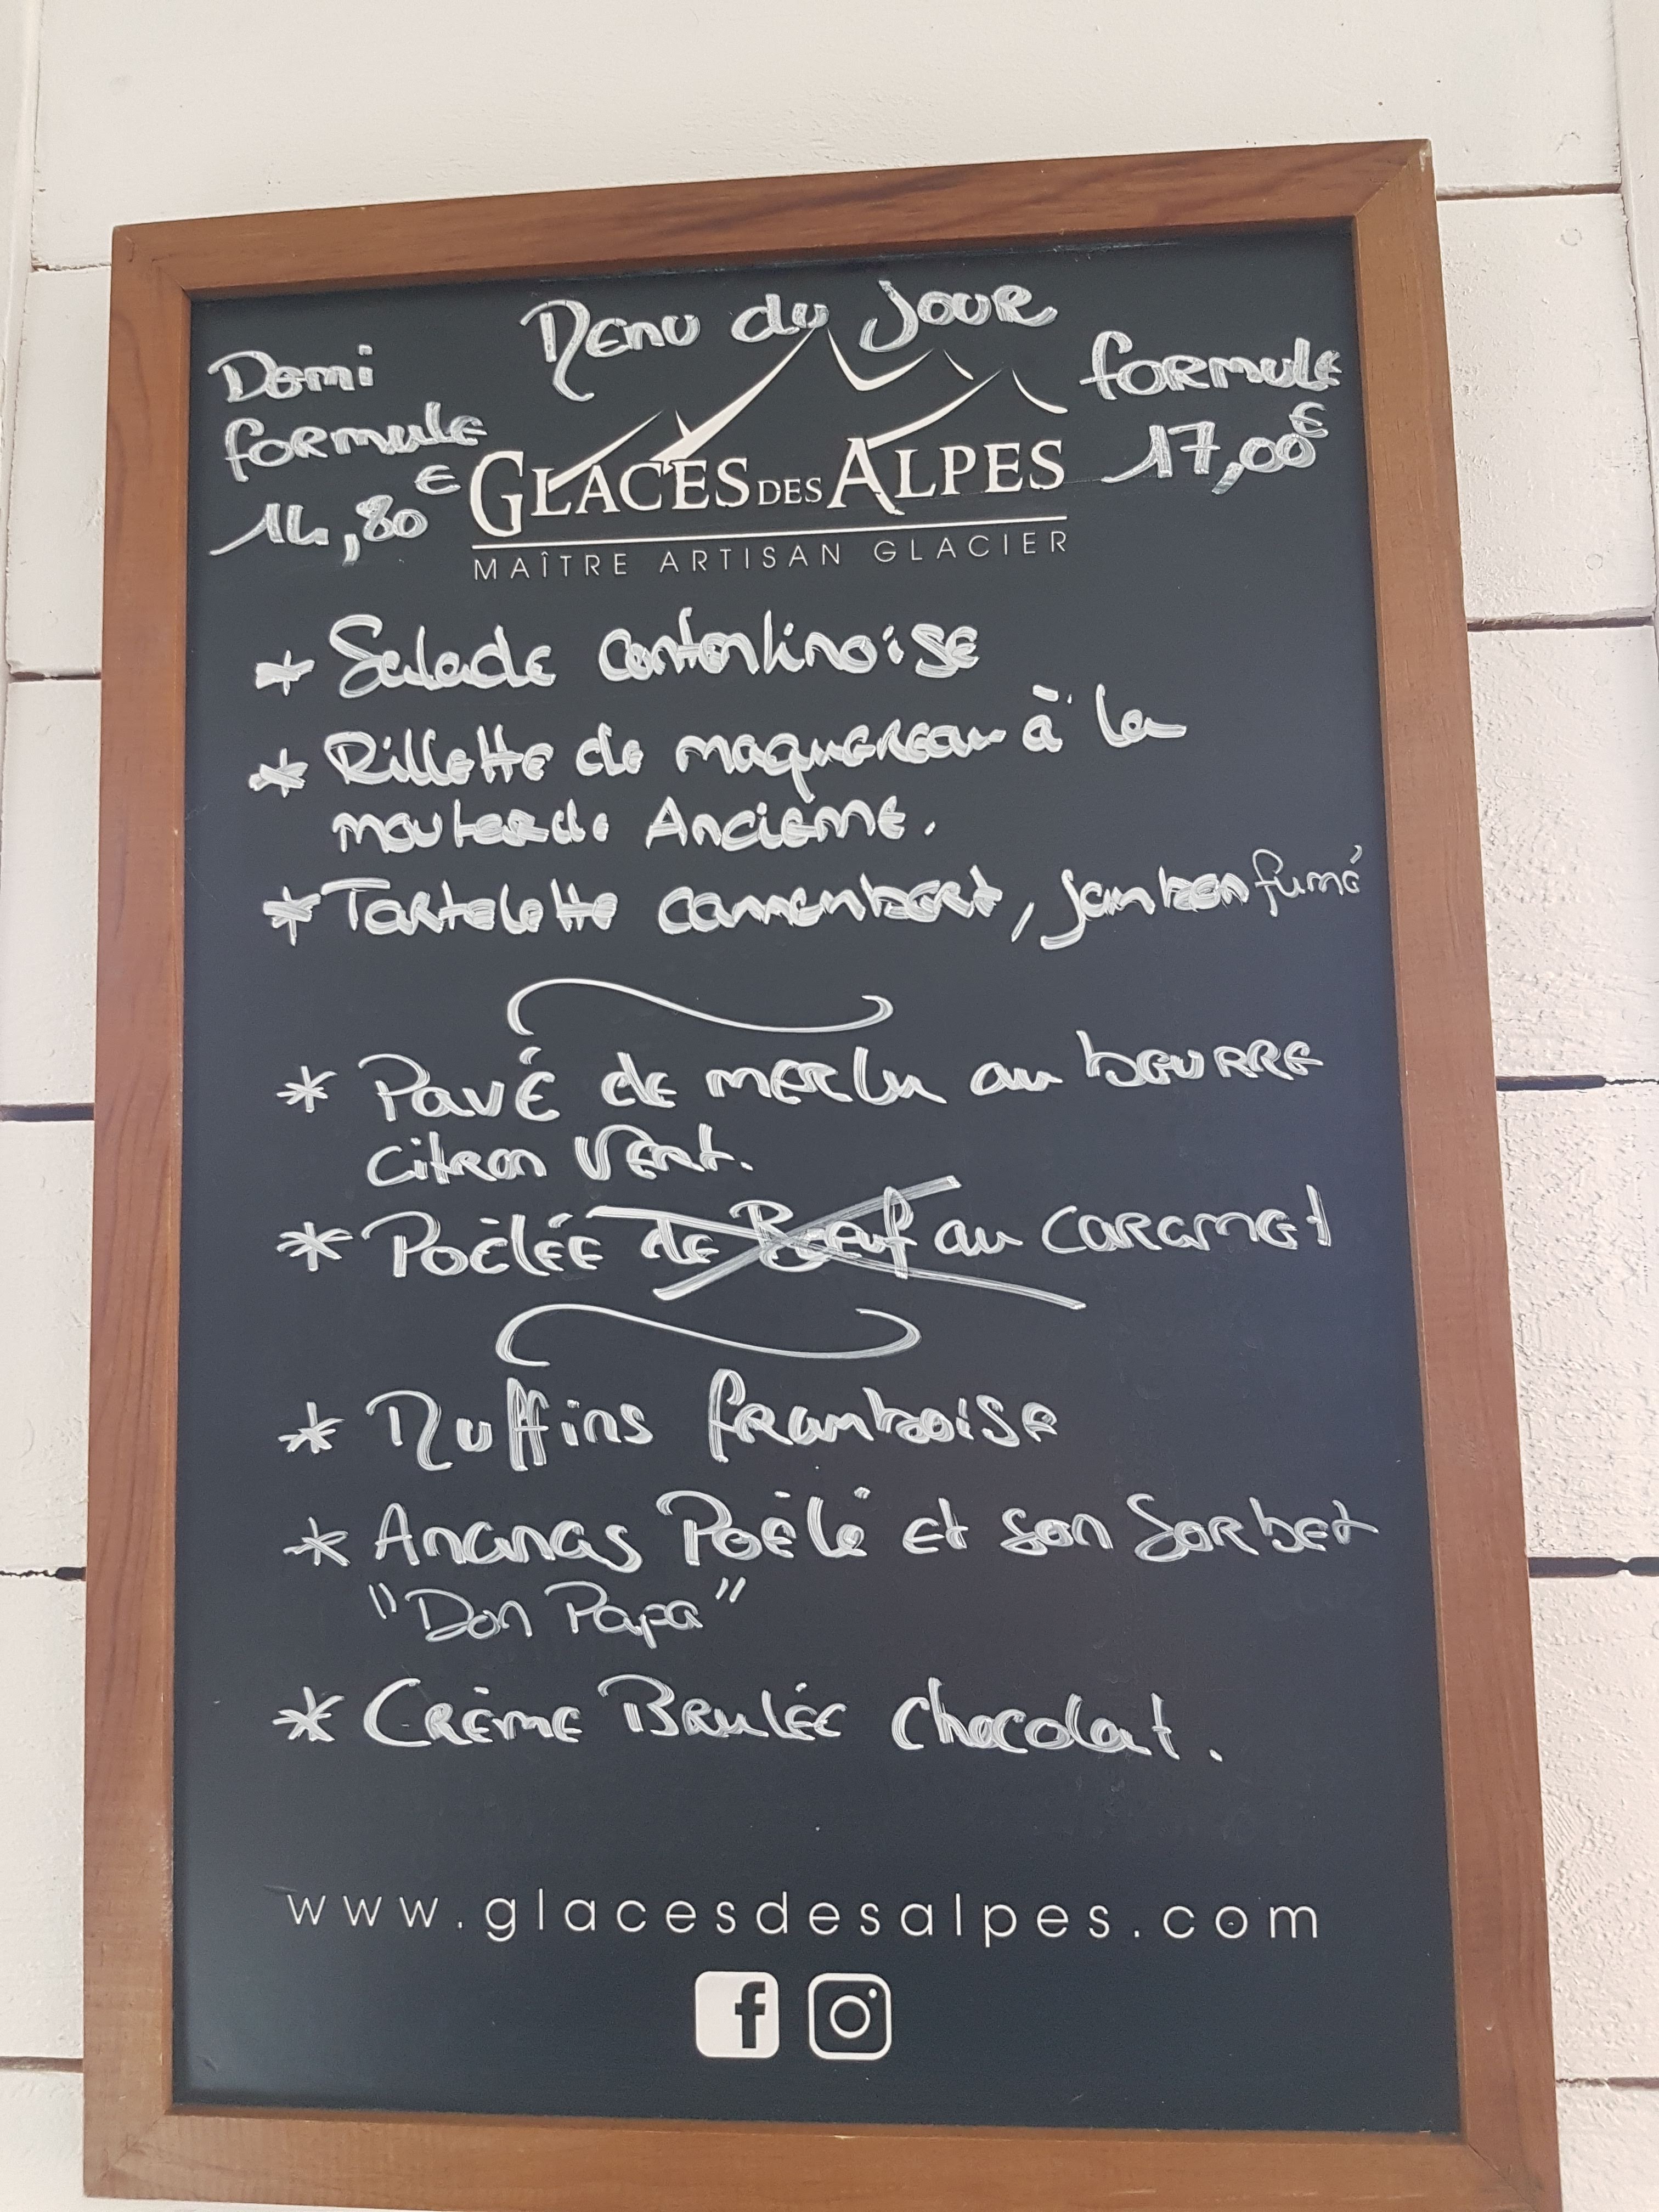 Menu du Jour
Demi
formule
14,80€
formule
17,00€
GLACES DES ALPES
MAÎTRE ARTISAN GLACIER
* Salade
* Rillette de maquereau à la
mouterde Ancienne.
* Tartelette camembert, jambon fumé
* Pavé de merlu au beurre
citron Vert.
* Poêlée de Boeuf au caramel
* Muffins framboise
* Ananas Poêlé et son Sorbet
"Don Papa"
* Crème Brulée chocolat.
www.glacesdesalpes.com
f